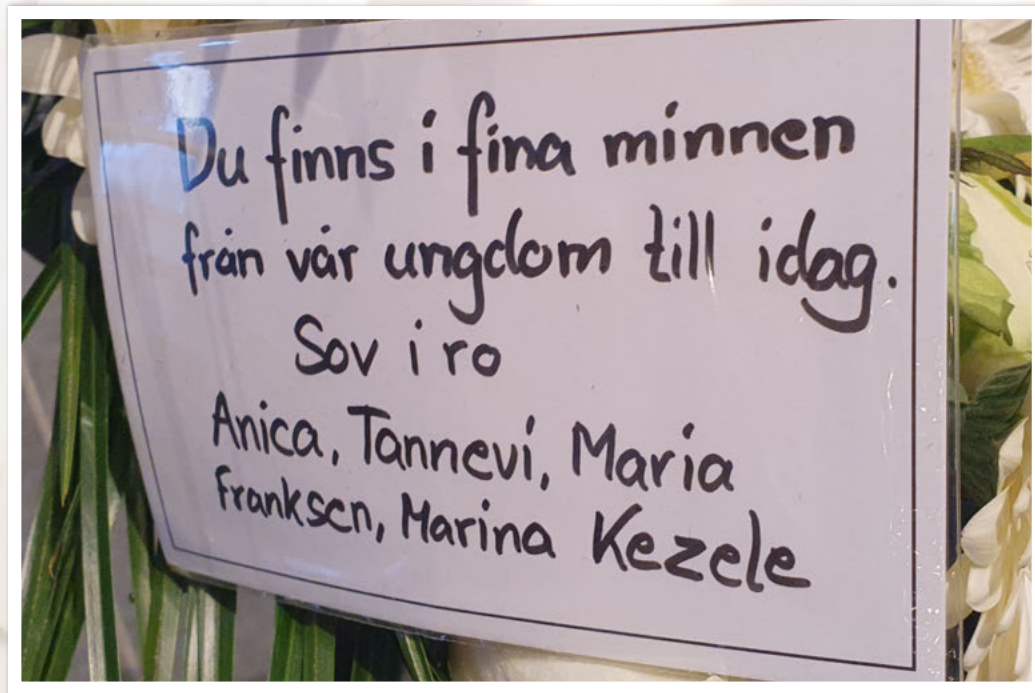 Du finns i fina minnen
från vår ungdom till idag.
Sov i ro
Anica, Tannevi, Maria
Franksen, Marina Kezele